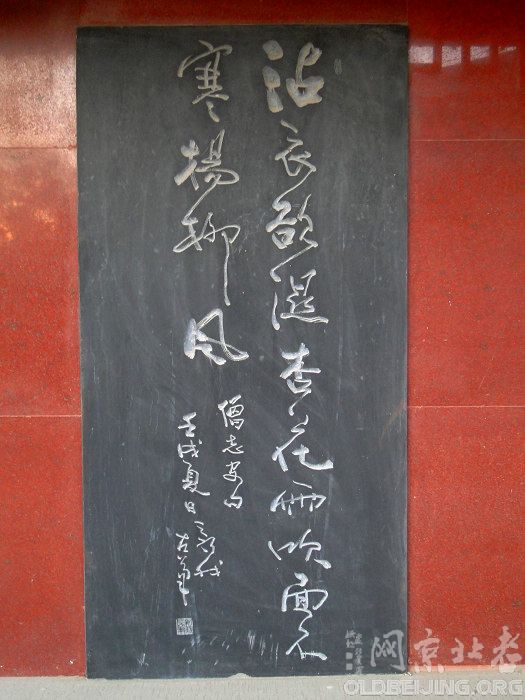 沾衣欲湿杏花雨吹面不
寒杨柳风
僧志安句
壬戌夏日
网京北老
OLDBEIJING.ORG